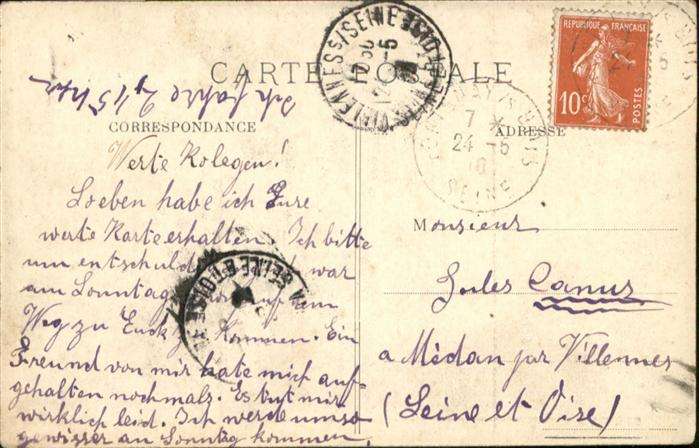 CARTE POSTALE
CORRESPONDANCE
Werte Kolegen!
Soeben habe ich Eure
werte Karte erhalten. Ich bitte
um war
am Sonntag auf dem
Weg zu Euch kommen. Ein
Freund von mir hate mich auf-
gehalten nochmals. Es tut mir
wirklich leid. Ich werde umso
gewisser an Sonntag kommen.
Ich fahre 2 15
ADRESSE
Monsieur
Jules Canus
a Médan par Villennes
(Seine et Oise)
REPUBLIQUE FRANÇAISE
10c
POSTES
VILLENNES S/ SEINE
7 *
24 -5
10
SEINE
SEINE & OISE